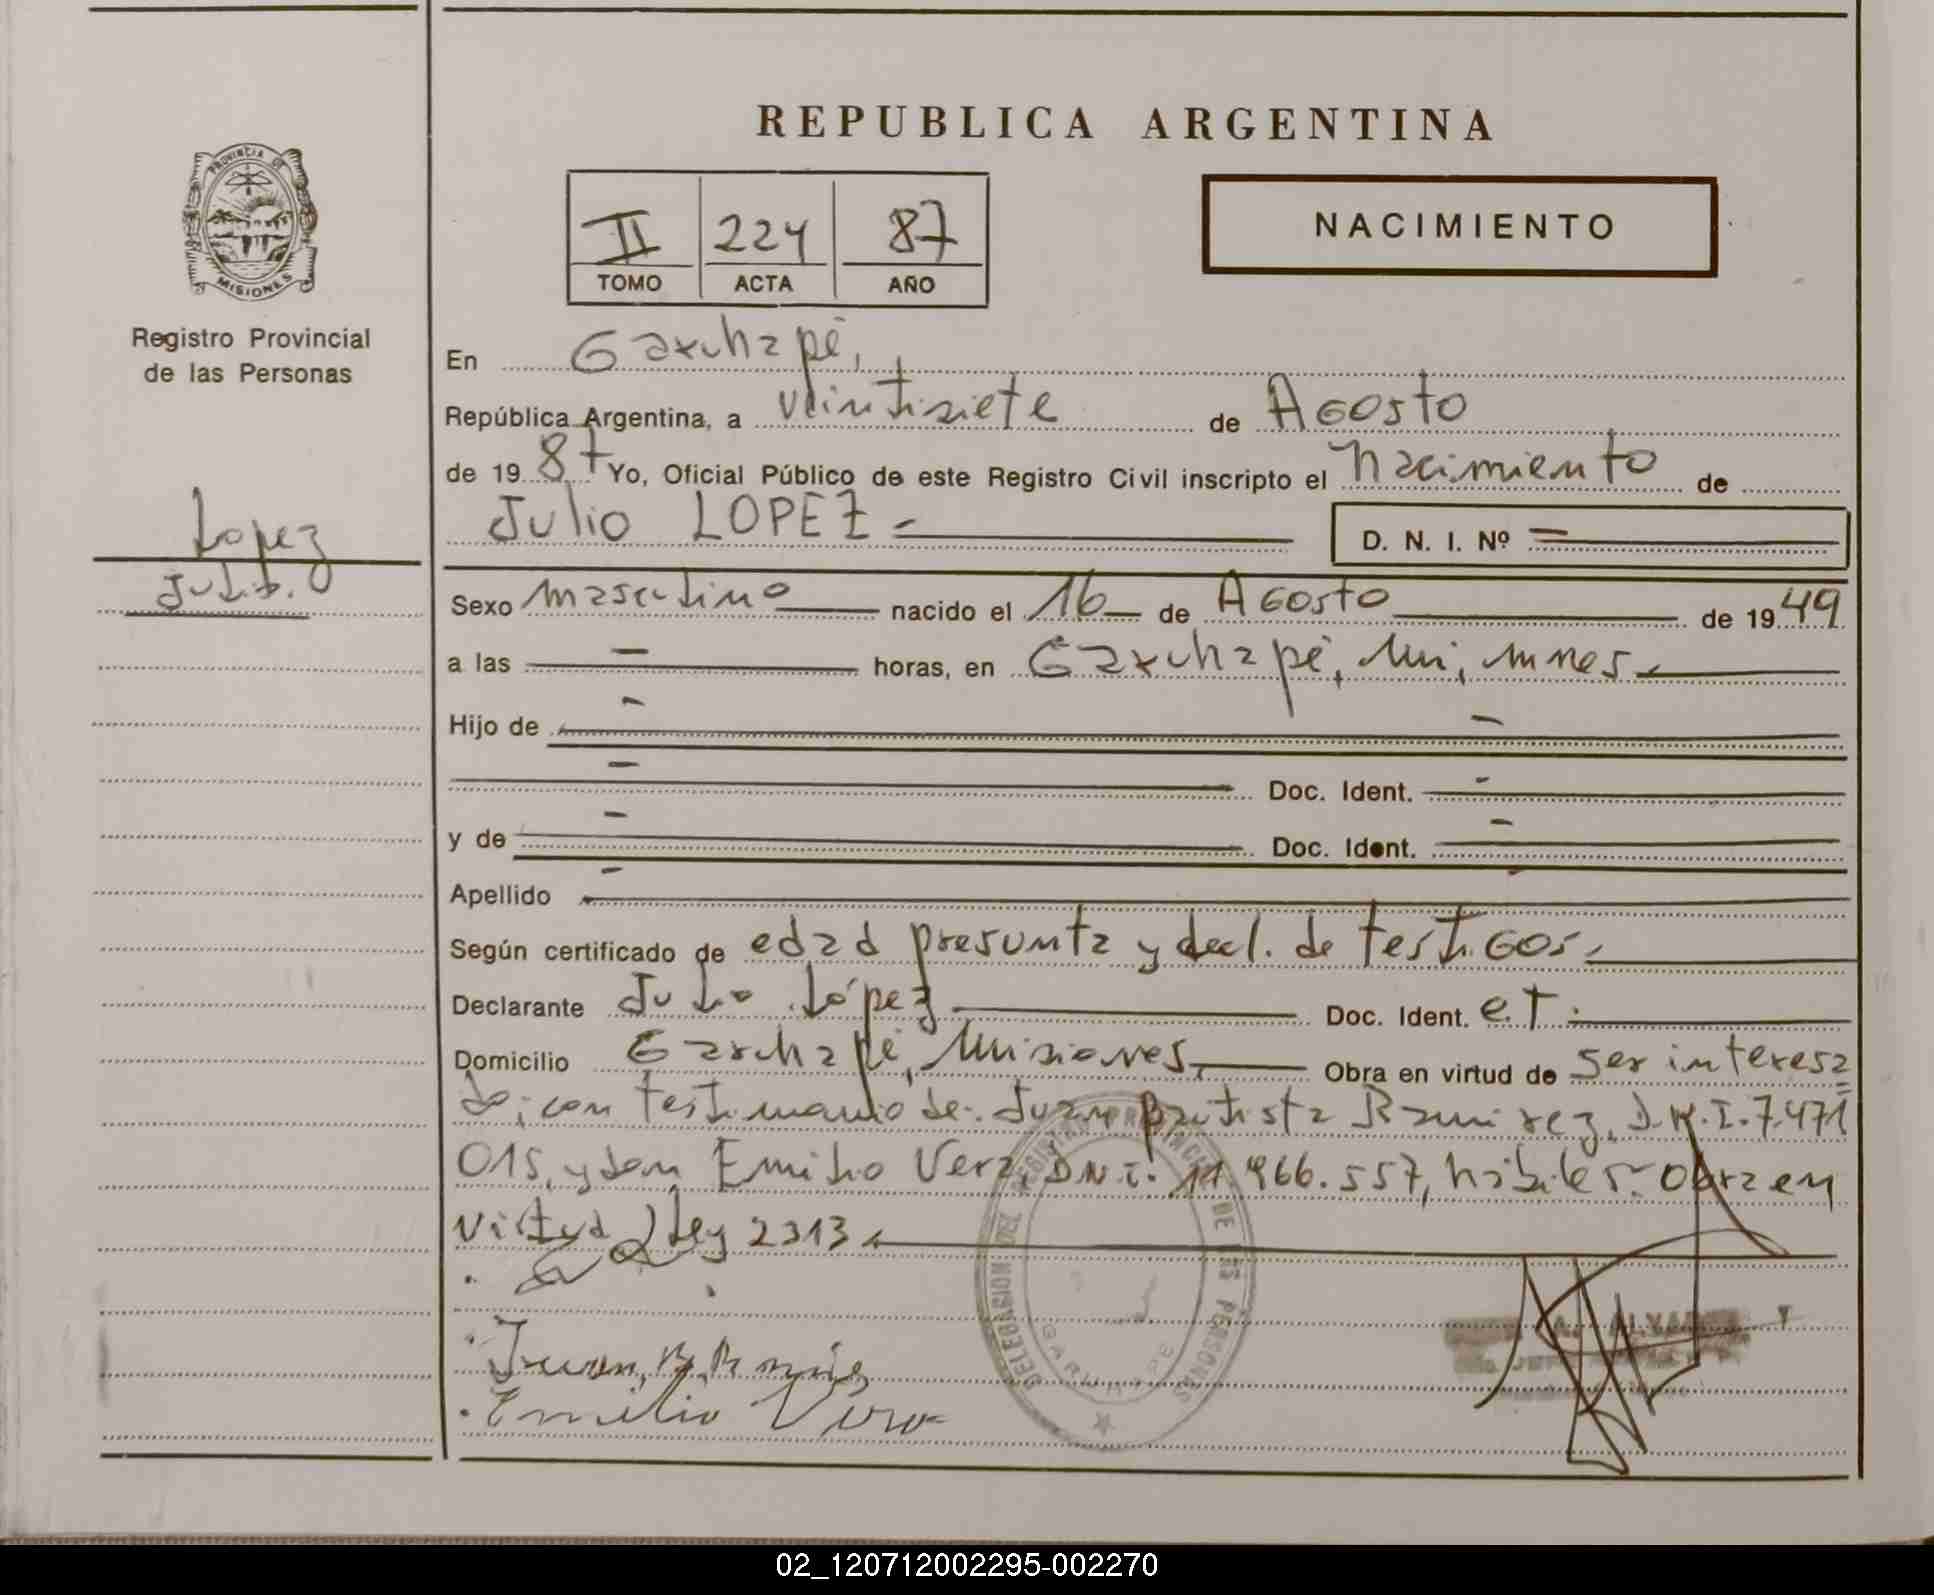 REPUBLICA ARGENTINA
PROVINCIA DE
MISIONES
Registro Provincial
de las Personas
II 224 87
TOMO ACTA AÑO
NACIMIENTO
En Garuhapé,
República Argentina, a veintisiete de Agosto
de 1987 Yo, Oficial Público de este Registro Civil inscripto el nacimiento de
Julio LOPEZ =
D. N. I. Nº =
Lopez
Julio.
Sexo masculino nacido el 16 de Agosto de 1949
a las — horas, en Garuhapé, Mnes
Hijo de —
— Doc. Ident. -
y de — Doc. Ident. —
Apellido —
Según certificado de edad presunta y decl. de testigos.
Declarante Julio López Doc. Ident. e.T.
Domicilio Garuhapé, Misiones, Obra en virtud de ser interesa
do; con testimonio de: Juan Bautista Ramirez, D.N.I. 7.471
015, y don Emilio Vera, D.N.I. 11.966.557, hábiles. Obra en
virtud Ley 2313
Juan B. Ramirez
Emilio Vera
DELEGACION DEL REGISTRO PROVINCIAL DE LAS PERSONAS
GARUHAPE
A. ALVAREZ
02_120712002295-002270